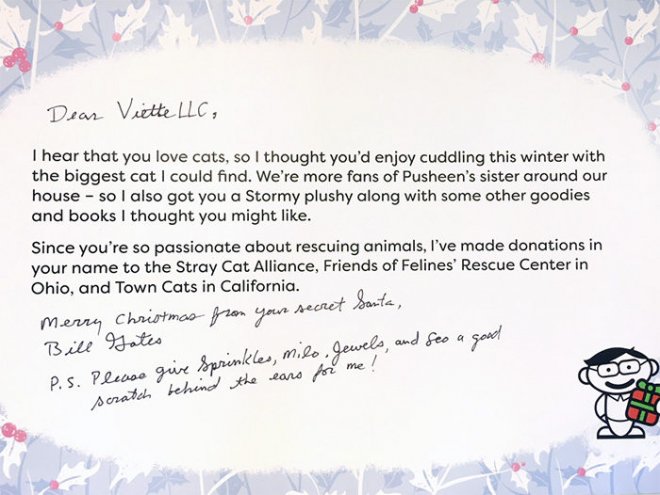 Dear Viette LLC,
I hear that you love cats, so I thought you'd enjoy cuddling this winter with
the biggest cat I could find. We're more fans of Pusheen's sister around our
house – so I also got you a Stormy plushy along with some other goodies
and books I thought you might like.
Since you're so passionate about rescuing animals, I've made donations in
your name to the Stray Cat Alliance, Friends of Felines' Rescue Center in
Ohio, and Town Cats in California.
Merry Christmas from your secret Santa,
Bill Gates
P.S. Please give Sprinkles, Milo, Jewels, and Geo a good
scratch behind the ears for me!